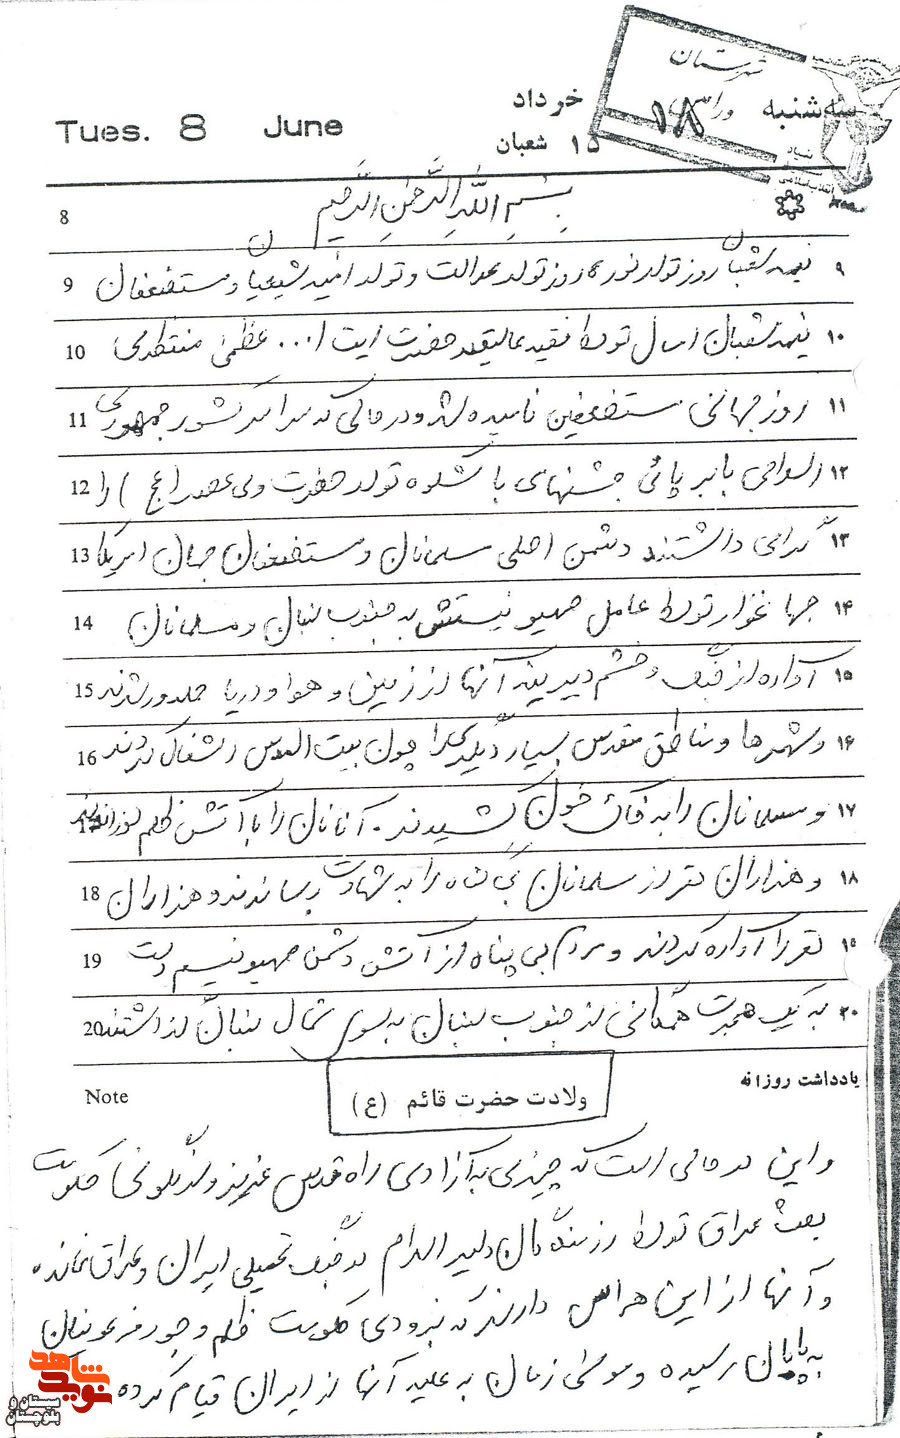 شهرستان
سه‌شنبه ۱۸ خرداد
Tues. 8 June
۱۵ شعبان
بسم الله الرحمن الرحیم
8
۹ نیمه شعبان روز تولد نور، روز تولد عدالت و تولد امید شیعیان و مستضعفان 9
۱۰ نیمه شعبان امسال توسط فقیه عالیقدر حضرت ایت ا... عظمی منتظری 10
۱۱ روز جهانی مستضعفین نامیده شد و در حالی که سراسر کشور جمهوری 11
۱۲ اسلامی با بر پائی جشنهای با شکوه تولد حضرت ولی عصر (عج) را 12
۱۳ گرامی داشتند دشمن اصلی مسلمانان و مستضعفان جهان امریکا 13
۱۴ جهانخوار توسط عامل صهیونیستش به جنوب لبنان و مسلمانان 14
۱۵ آواره از جنگ و خشم دیرینه آنها از زمین و هوا و دریا حمله‌ور شدند 15
۱۶ و شهرها و مناطق مقدس بسیار دیگری را چون بیت المقدس اشغال کردند 16
۱۷ و مسلمانان را به خاک و خون کشیدند. آنانان را با آتش ظلم سوزاندند 17
۱۸ و هزاران نفر از مسلمانان بی گناه را به شهادت رساندند و هزاران 18
۱۹ نفر را آواره کردند و مردم بی پناه از آتش دشمن صهیونیسم دست 19
۲۰ به یک هجرت همگانی از جنوب لبنان به سوی شمال لبنان گذاشتند 20
یادداشت روزانه
Note
ولادت حضرت قائم (ع)
و این در حالی است که چیزی به آزادی راه قدس عزیز و سرنگونی حکومت
بعث عراق توسط رزمندگان دلیر اسلام در جنگ تحمیلی ایران و عراق نمانده
و آنها از این هراس دارند که بزودی حکومت ظلم و جور فرعونیان
به پایان رسیده و موسی زمان به علیه آنها از ایران قیام کرده
نوید شاهد
سیستان و بلوچستان